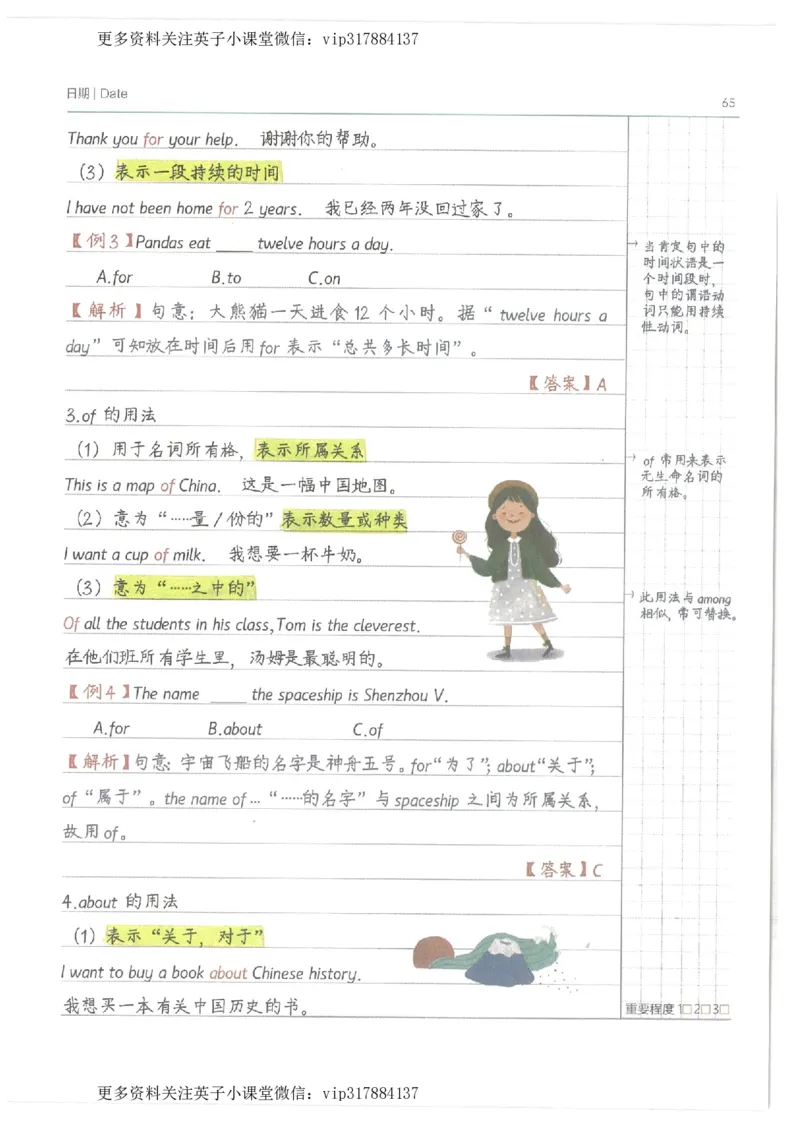 更多资料关注英子小课堂微信：vip317884137
日期 | Date
65
Thank you for your help. 谢谢你的帮助。
（3）表示一段持续的时间
I have not been home for 2 years. 我已经两年没回过家了。
【例3】Pandas eat ____ twelve hours a day.
A.for B.to C.on
【解析】句意：大熊猫一天进食 12 个小时。据“ twelve hours a
day”可知放在时间后用for 表示“总共多长时间”。
【答案】A
→ 当肯定句中的
时间状语是一
个时间段时，
句中的谓语动
词只能用持续
性动词。
3.of 的用法
（1）用于名词所有格，表示所属关系
This is a map of China. 这是一幅中国地图。
→ of 常用来表示
无生命名词的
所有格。
（2）意为“……量/份的”表示数量或种类
I want a cup of milk. 我想要一杯牛奶。
（3）意为“……之中的”
→ 此用法与 among
相似，常可替换。
Of all the students in his class,Tom is the cleverest.
在他们班所有学生里，汤姆是最聪明的。
【例4】The name ____ the spaceship is Shenzhou V.
A.for B.about C.of
【解析】句意：宇宙飞船的名字是神舟五号。for“为了”；about“关于”；
of“属于”。the name of ...“……的名字”与 spaceship 之间为所属关系，
故用 of。
【答案】C
4.about 的用法
（1）表示“关于，对于”
I want to buy a book about Chinese history.
我想买一本有关中国历史的书。
重要程度 1□2□3□
更多资料关注英子小课堂微信：vip317884137